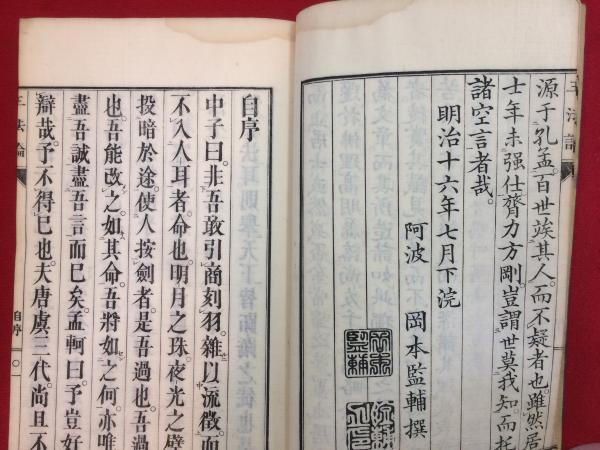 王法論
源于孔孟。百世竢其人。而不疑者也。雖然居
士年未强仕膂力方剛。豈謂世莫我知而托
諸空言者哉。
明治十六年七月下浣
阿波 岡本監輔撰
自序
中子曰。非吾敢引商刻羽。雜以流徵。而
不入人耳者。命也。明月之珠。夜光之璧
投暗於途。使人按劍者。是吾過也。吾過
也。吾能改之。如其命。吾將如之何。亦唯
盡吾誠盡吾言而已矣。孟軻曰。予豈好
辯哉。予不得已也。夫唐虞三代。尚且不
王法論 自序